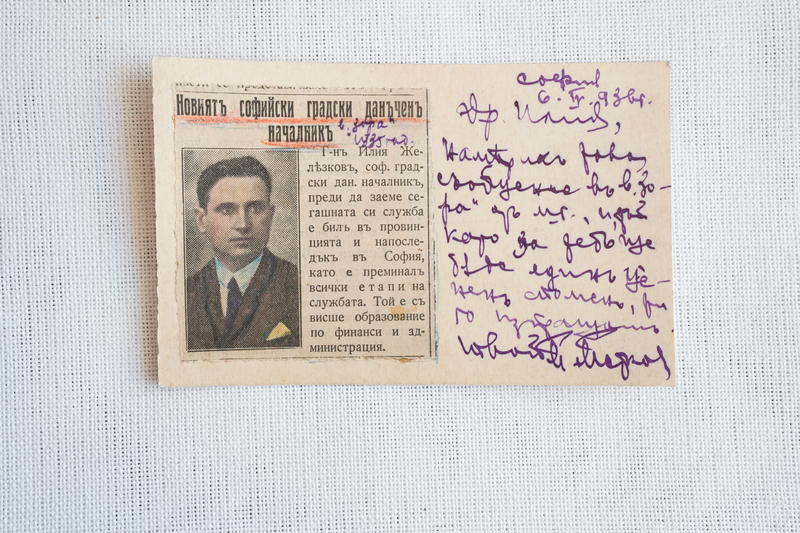 Новиятъ софийски градски данъченъ
началникъ в. „Зора“
1935 год.
Г-нъ Илия Же-
лѣзковъ, соф. град-
ски дан. началникъ,
преди да заеме се-
гашната си служба
е билъ въ провин-
цията и напосле-
дъкъ въ София,
като е преминалъ
всички етапи на
службата. Той е съ
висше образование
по финанси и ад-
министрация.
София
6. IV. 936г.
Др. Илия,
Намѣрихъ това
съобщение въ в. „Зо-
ра“ отъ м.г., и тъй
като за тебъ ще
бѫде единъ це-
ненъ споменъ,
го изпращамъ.